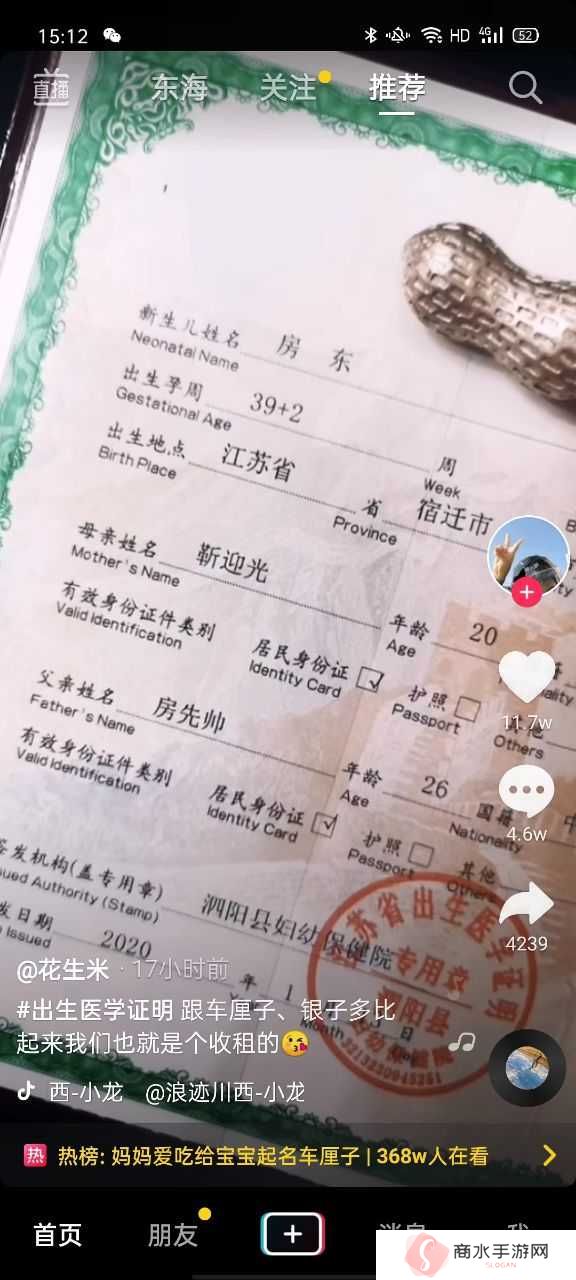 15:12
HD 4G 52
直播 东海 关注 推荐
新生儿姓名 房 东
Neonatal Name
出生孕周 39+2 周
Gestational Age Week
出生地点 江苏省 省 宿迁市
Birth Place Province
母亲姓名 靳迎光 年龄 20
Mother's Name Age
有效身份证件类别 居民身份证 护照
Valid Identification Identity Card Passport Others
父亲姓名 房先帅 年龄 26 国籍 中
Father's Name Age Nationality
有效身份证件类别 居民身份证 护照 其他
Valid Identification Identity Card Passport Others
签发机构(盖专用章) 泗阳县妇幼保健院
sued Authority (Stamp)
发日期 2020 年 1
Issued Month
江苏省出生医学证明
专用章
泗阳县
11.7w
4.6w
4239
@花生米 · 17小时前
#出生医学证明 跟车厘子、银子多比
起来我们也就是个收租的😘
西-小龙 @浪迹川西-小龙
热 热榜: 妈妈爱吃给宝宝起名车厘子 | 368w人在看
首页 朋友
商水手游网
SLOGAN